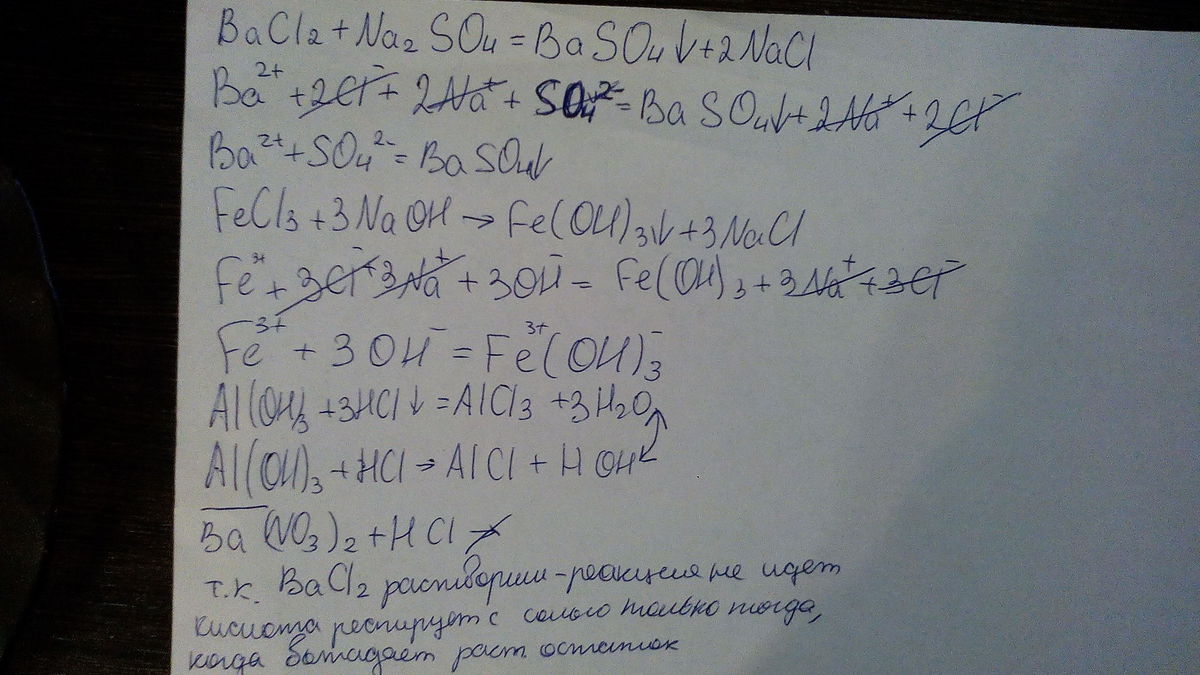 BaCl₂ + Na₂SO₄ = BaSO₄↓ + 2NaCl
Ba²⁺ + 2Cl⁻ + 2Na⁺ + SO₄²⁻ = BaSO₄↓ + 2Na⁺ + 2Cl⁻
Ba²⁺ + SO₄²⁻ = BaSO₄↓
FeCl₃ + 3NaOH → Fe(OH)₃↓ + 3NaCl
Fe³⁺ + 3Cl⁻ + 3Na⁺ + 3OH⁻ = Fe(OH)₃ + 3Na⁺ + 3Cl⁻
Fe³⁺ + 3OH⁻ = Fe³⁺(OH)₃⁻
Al(OH)₃ + 3HCl↓ = AlCl₃ + 3H₂O
Al(OH)₃ + HCl → AlCl + HOH
Ba(NO₃)₂ + HCl ↛
т.к. BaCl₂ растворим - реакция не идет
кислота регирует с солью только тогда,
когда выпадает раст. остаток